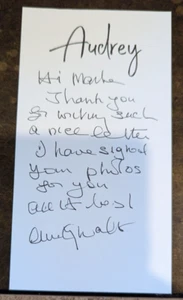 Audrey
Hi
Thank you
for writing such
a nice letter
I have signed
your photos
for you
all best